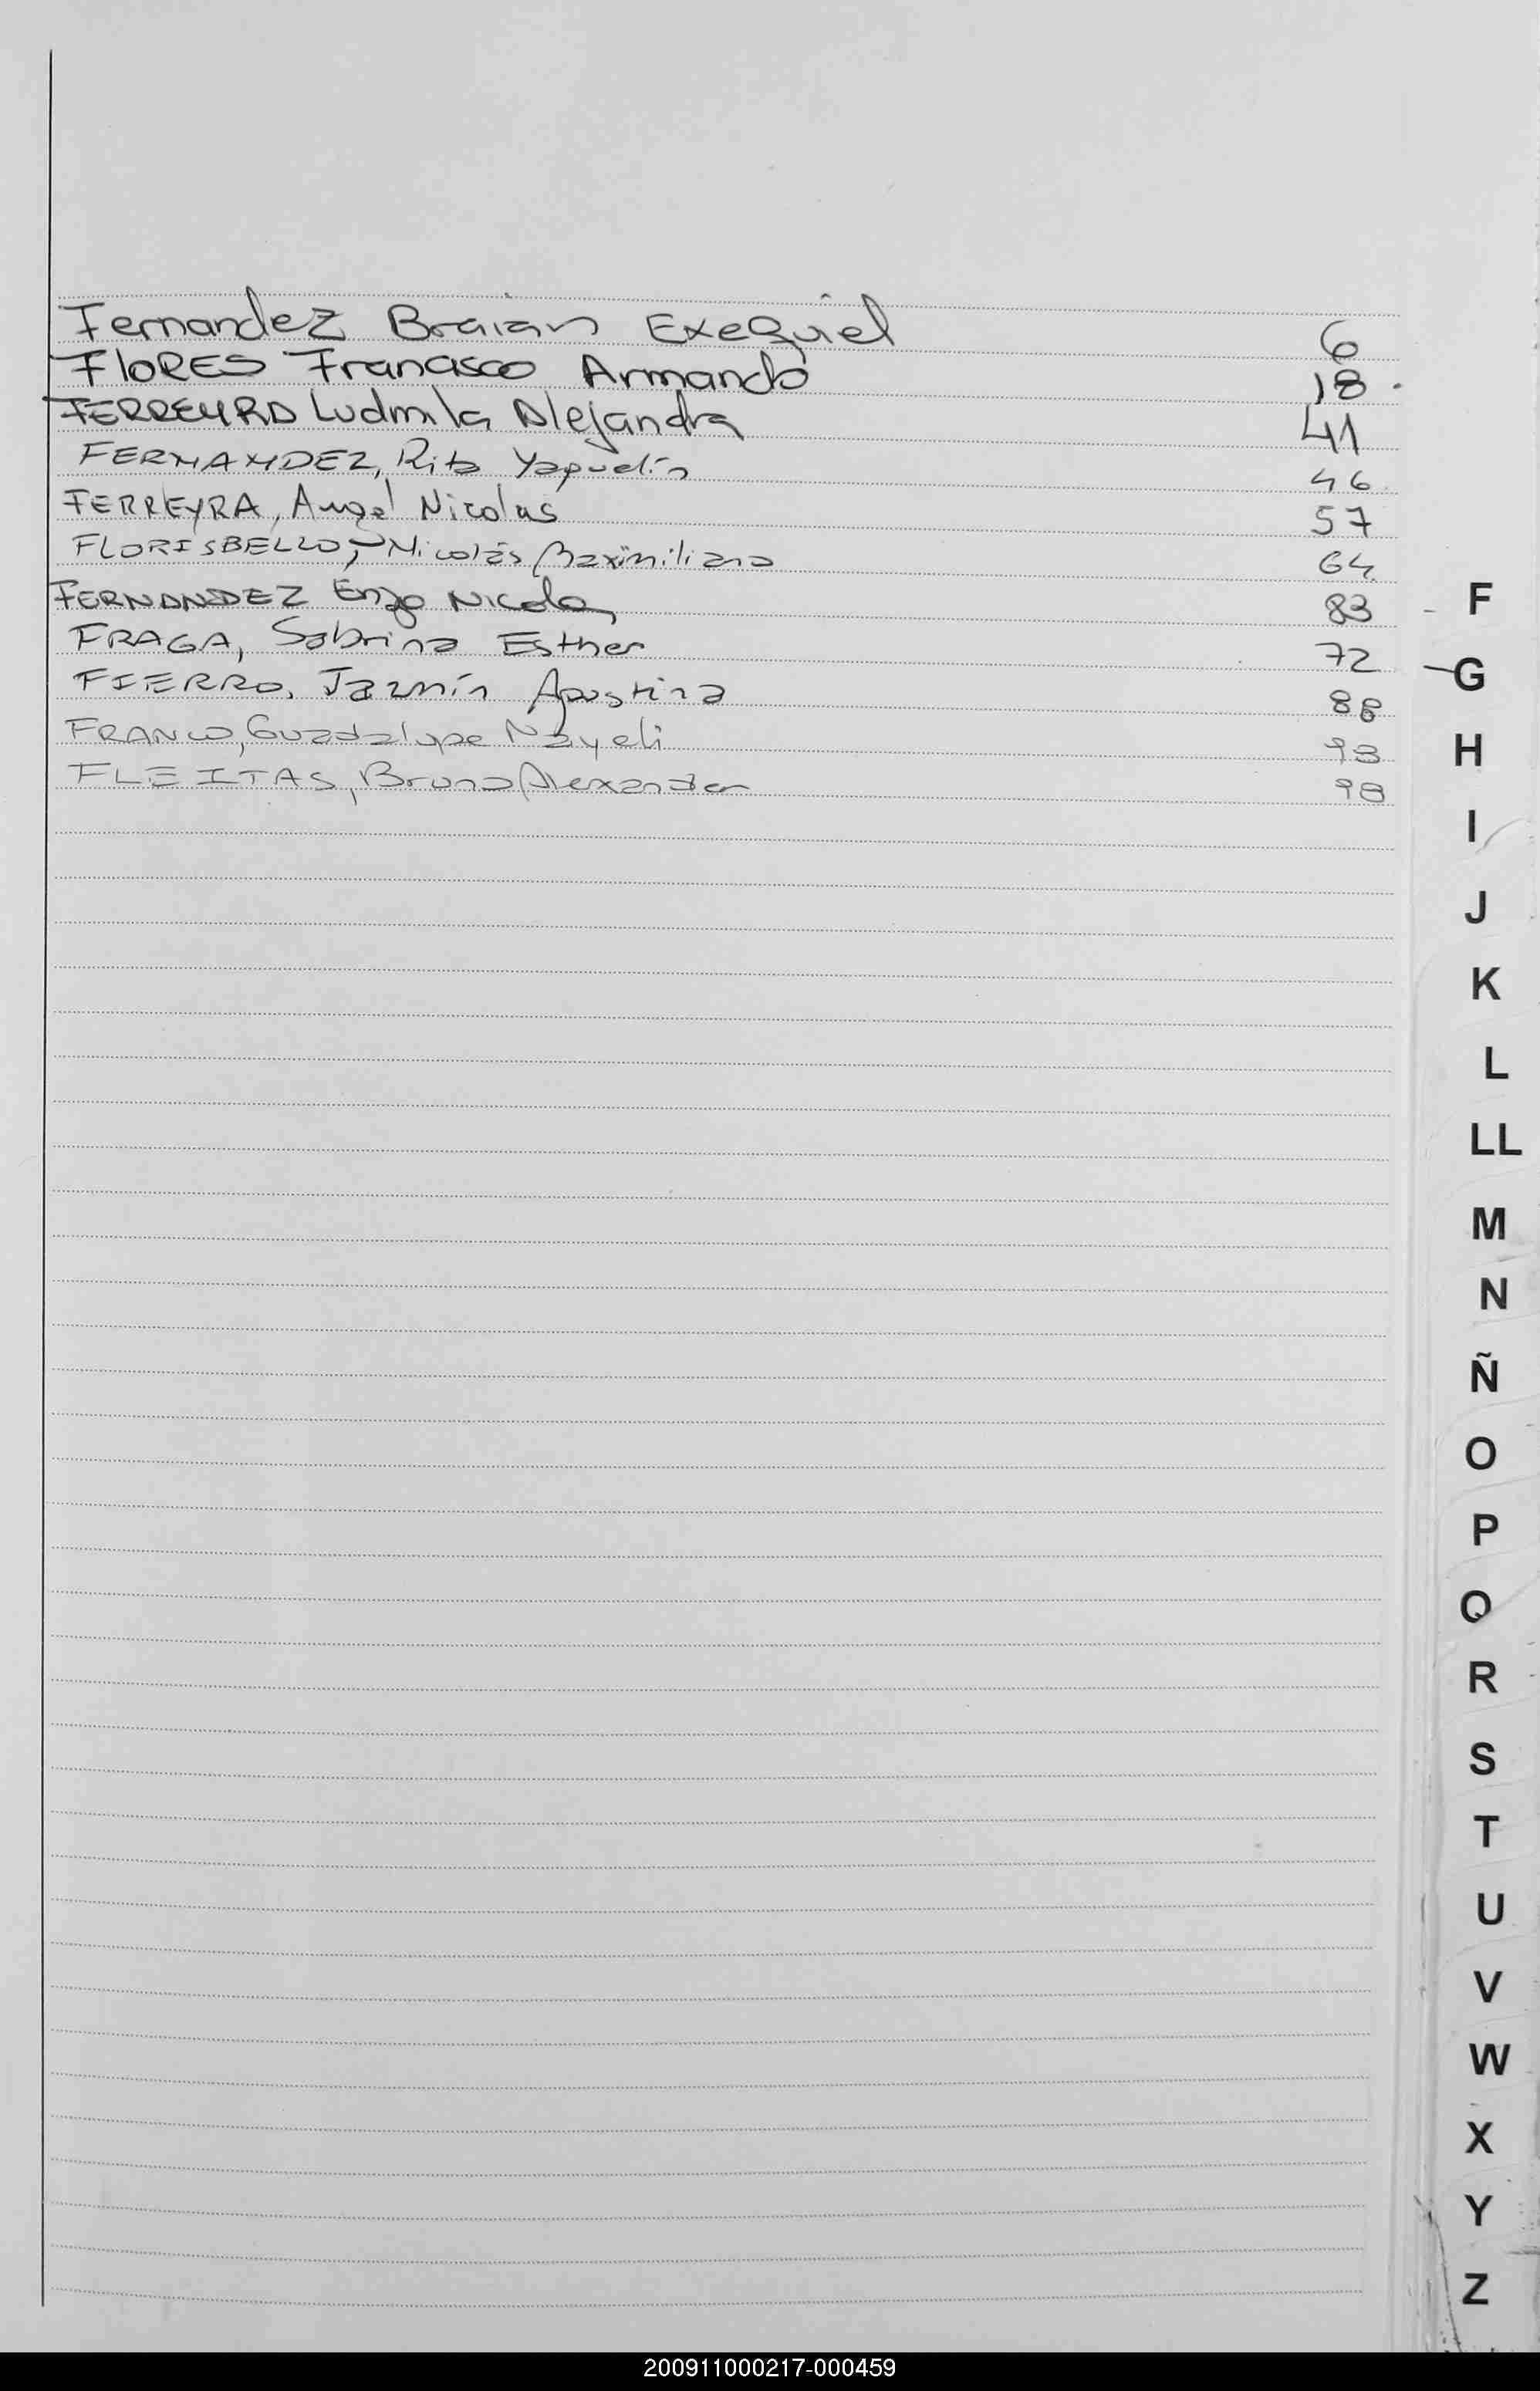 Fernandez Braian Exequiel 6
FlORES Francisco Armando 18
FERREYRA Ludmila Alejandra 41
FERNANDEZ, Rita Yaquelín 46
FERREYRA, Angel Nicolas 57
FLORISBELLO, Nicolás Maximiliano 64
FERNANDEZ Enzo Nicolas 83
FRAGA, Sabrina Esther 72
FIERRO, Jazmín Agustina 88
FRANCO, Guadalupe Nayeli 93
FLEITAS, Bruno Alexander 98
F
G
H
I
J
K
L
LL
M
N
Ñ
O
P
Q
R
S
T
U
V
W
X
Y
Z
200911000217-000459